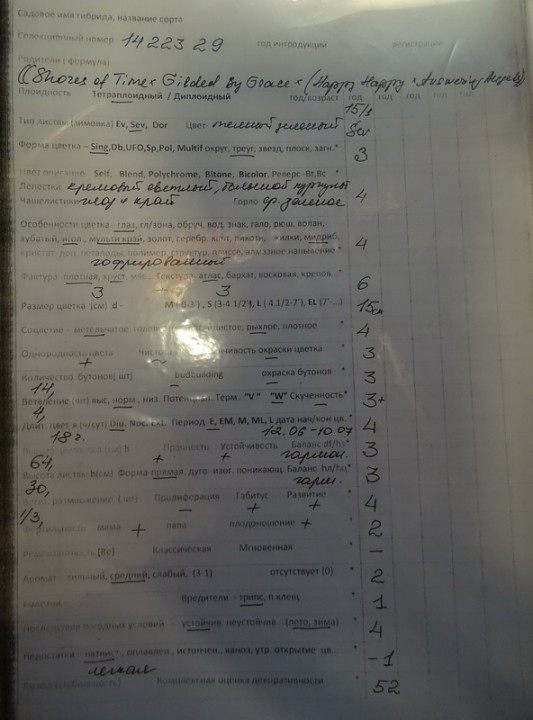 Садовое имя гибрида, название сорта
Селекционный номер 14 223 29 год интродукции регистрации
Родители (формула)
((Shores of Time × Gilded By Grace × (Happy Happy × Answering Angels)
Плоидность Тетраплоидный / Диплоидный год/возраст год год год год год
15/3
Тип листвы (зимовка) Ev, Sev, Dor Цвет- темный зеленый * Sev
Форма цветка – Sing, Db, UFO, Sp, Pol, Multif округ, треуг, звезд, плоск, загн.* 3
Цвет описания Self, Blend, Polychrome, Bitone, Bicolor. Реверс -Bt, Bc
Лепестки кремовый светлый, большой пурпурн
Чашелистики глаз и край Горло ор. зеленое 4
Особенности цветка - глаз, гл/зона, обруч, вод. знак, гало, рюш, волан,
зубатый, игол., мульти край, золот, серебр. кант, пикоти, жилки, мидриб, 4
кристат, доп. петалоиды, полимер, структур, плиссе, алмазное напыление *
гофрированный
Фактура плотная, хруст, мяс. Текстура атлас, бархат, восковая, крепов. * 6
3 3
Размер цветка (см) d - M- 0-3"), S (3-4.1/2"), L (4.1/2-7"), EL (7"-...) 15см
Соцветие - метельчатое, рыхлое, плотное * 4
Однородность цвета окраски цветка * 3
+ ~
Количество бутонов( шт) budbuilding окраска бутонов * 3
14,
Ветвление (шт) выс, норм, низ. Потенциал. Терм. "V" "W" Скученность* 3+
4,
Длит. цвет-я (ч/сут) Diu. Noc. Ext. Период E, EM, M, ML, L дата нач/кон цв. * 4
18 ч. 12.06 – 10.07
h Прочность Устойчивость Баланс df/hs* 3
64, + + гармон.
Высота листвы h(см) Форма прямая, дуго-изог, поникающ. Баланс hл/hц* 3
30, гарм.
размножение (шт) Пролиферация Габитус Развитие * 4
1/3, – + +
Фертильность мама + папа плодоношение + * 2
Ремонтантность (Re) Классическая Мгновенная * –
Аромат - сильный, средний, слабый, (3-1) отсутствует (0) * 2
Вредители - трипс, п.клещ * 1
погодных условий устойчив, неустойчив (лето, зима) * 4
Недостатки - пятнист., оплавлен., источнен., каноэ, утр. открытие цв.. * -1
легкая
Комплексная оценка декоративности * 52